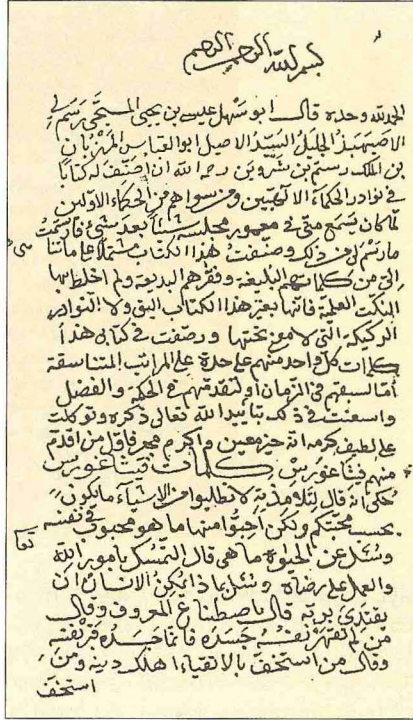 بسم الله الرحمن الرحيم
الحمد لله وحده قال ابو سهل عيسى بن يحيى المسيحي رسم لي
الاصبهبذ الجليل السيد الاصيل ابو العباس المرزبان
بن الملك رستم بن شروين رحمه الله ان اصنف له كتابا
في نوادر الحكماء الآلهيين ومن سواهم من الحكماء الاولين
لما كان يسمع مني في معمور مجلسه شيئا بعد شيء فارتسمت
ما رسم لي من ذلك وصنفت هذا الكتاب مشتملا على ما تنا
الي من كلماتهم البليغة وفقرهم البديعة ولم اخلط بها
النكت العلمية فانها بغير هذا الكتاب اليق ولا النوادر
الركيكة التي لا معنى تحتها ورصفت في كتابي هذا
كلمات كل واحد منهم على حدة على المراتب المتناسقة
اما لسبقهم في الزمان او لتقدمهم في الحكمة والفضل
واستعنت في ذلك بتأييد الله تعالى ذكره وتوكلت
على لطيف كرمه انه خير معين واكرم فاول من اقدم
منهم فيثاغورس كلمات فيثاغورس
حكى انه قال لتلامذته لا تطلبوا من الاشياء ما يكون
بحسب محبتكم ولكن احبوا منها ما هو محبوب في نفسه
وسئل عن الحيوة ما هي قال التمسك بامور الله
والعمل على رضاه وسئل بماذا يمكن الانسان ان
يقتدي بربه قال باصطناع المعروف وقال
من لم تقهر نفسه جسده فانما جسده قبر لنفسه
وقال من استخف بالاتقياء اهلك دينه ومن
استخف